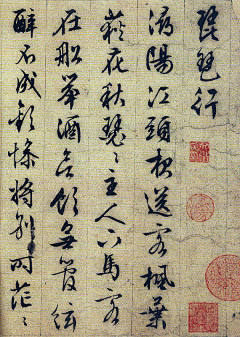 琵琶行
潯陽江頭夜送客楓葉
荻花秋瑟〻主人下馬客
在船舉酒欲飲無管絃
醉不成歡慘將別〻時茫〻